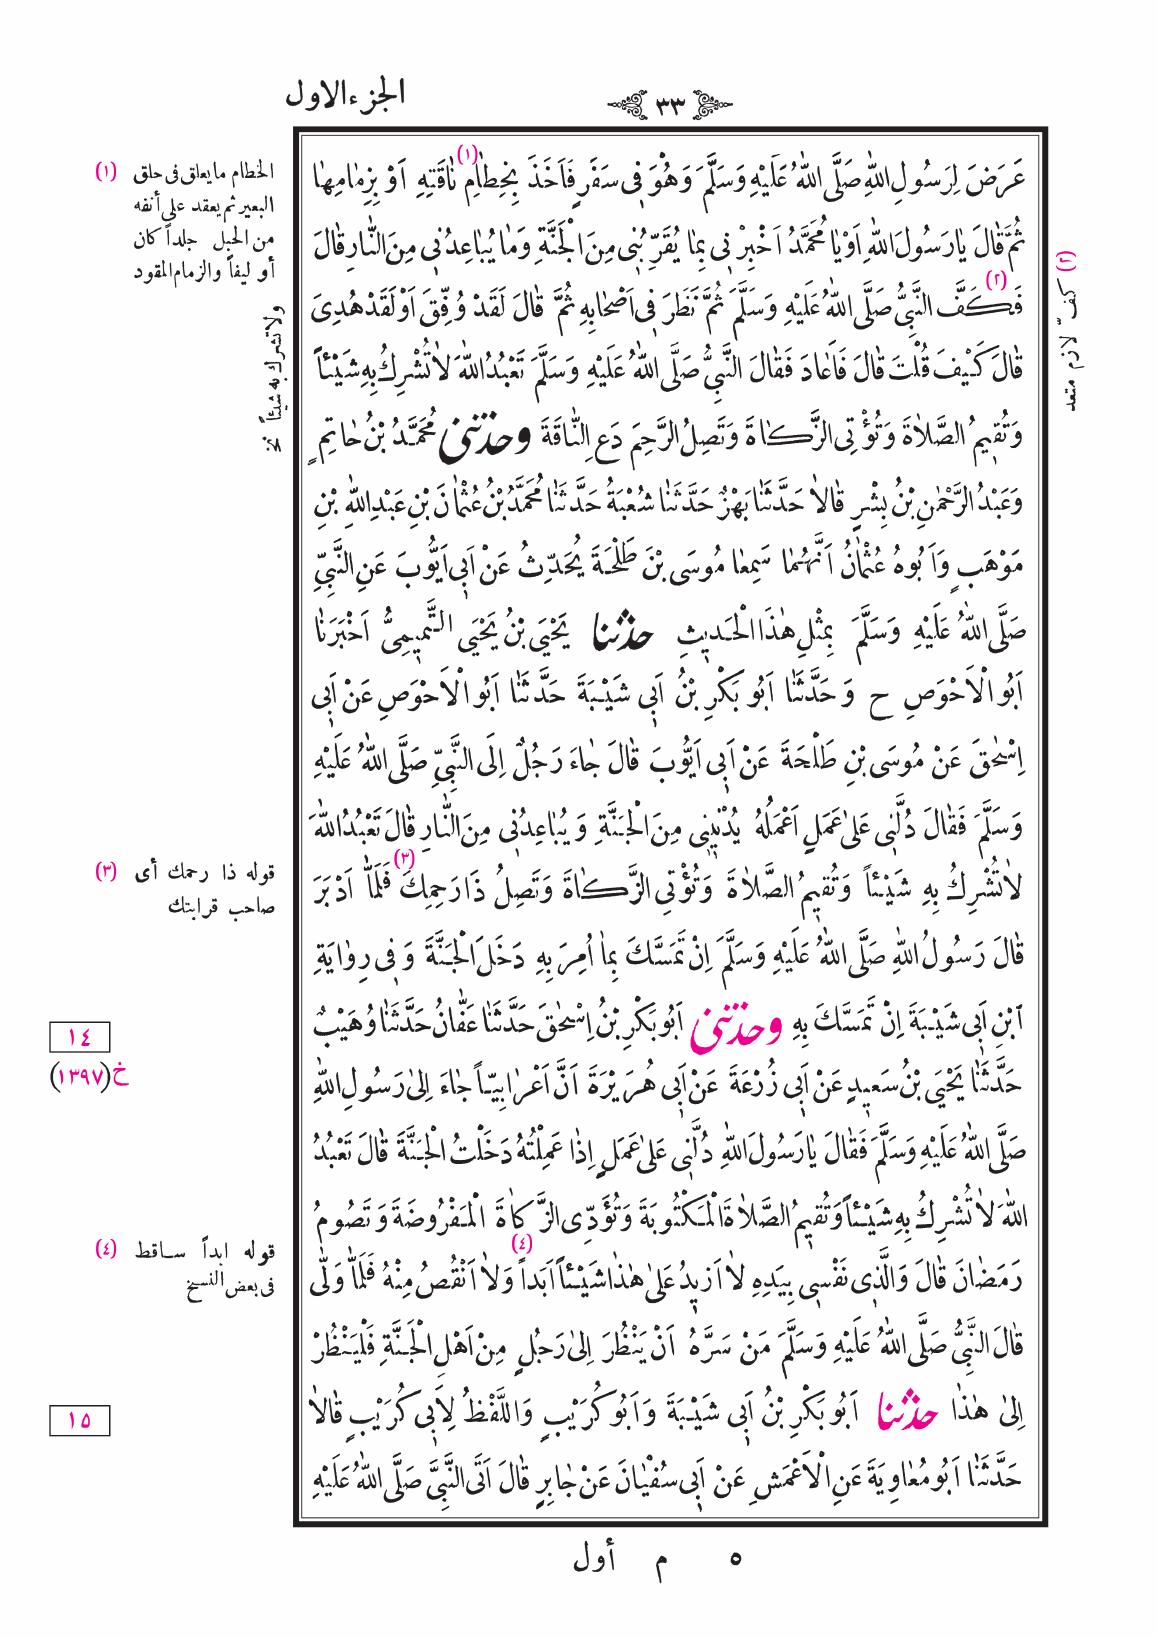 الجزء الاول
٣٣
عَرَضَ لِرَسُولِ اللّٰهِ صَلَّى اللّٰهُ عَلَيْهِ وَسَلَّمَ وَهُوَ فِى سَفَرٍ فَاَخَذَ بِخِطَامِ (١) نَاقَتِهِ اَوْ بِزِمَامِهَا
ثُمَّ قَالَ يَا رَسُولَ اللّٰهِ اَوْ يَا مُحَمَّدُ اَخْبِرْنِى بِمَا يُقَرِّبُنِى مِنَ الْجَنَّةِ وَمَا يُبَاعِدُنِى مِنَ النَّارِ قَالَ
فَكَفَّ (٢) النَّبِىُّ صَلَّى اللّٰهُ عَلَيْهِ وَسَلَّمَ ثُمَّ نَظَرَ فِى اَصْحَابِهِ ثُمَّ قَالَ لَقَدْ وُفِّقَ اَوْ لَقَدْ هُدِىَ
قَالَ كَيْفَ قُلْتَ قَالَ فَاَعَادَ فَقَالَ النَّبِىُّ صَلَّى اللّٰهُ عَلَيْهِ وَسَلَّمَ تَعْبُدُ اللّٰهَ لَا تُشْرِكُ بِهِ شَيْئاً
وَتُقِيمُ الصَّلَاةَ وَتُؤْتِى الزَّكَاةَ وَتَصِلُ الرَّحِمَ دَعِ النَّاقَةَ وحدثنى مُحَمَّدُ بْنُ حَاتِمٍ
وَعَبْدُ الرَّحْمٰنِ بْنُ بِشْرٍ قَالَا حَدَّثَنَا بَهْزٌ حَدَّثَنَا شُعْبَةُ حَدَّثَنَا مُحَمَّدُ بْنُ عُثْمَانَ بْنِ عَبْدِ اللّٰهِ بْنِ
مَوْهَبٍ وَاَبُوهُ عُثْمَانُ اَنَّهُمَا سَمِعَا مُوسَى بْنَ طَلْحَةَ يُحَدِّثُ عَنْ اَبِى اَيُّوبَ عَنِ النَّبِىِّ
صَلَّى اللّٰهُ عَلَيْهِ وَسَلَّمَ بِمِثْلِ هٰذَا الْحَدِيثِ حدثنا يَحْيَى بْنُ يَحْيَى التَّمِيمِىُّ اَخْبَرَنَا
اَبُو الْاَحْوَصِ ح وَحَدَّثَنَا اَبُو بَكْرِ بْنُ اَبِى شَيْبَةَ حَدَّثَنَا اَبُو الْاَحْوَصِ عَنْ اَبِى
اِسْحٰقَ عَنْ مُوسَى بْنِ طَلْحَةَ عَنْ اَبِى اَيُّوبَ قَالَ جَاءَ رَجُلٌ اِلَى النَّبِىِّ صَلَّى اللّٰهُ عَلَيْهِ
وَسَلَّمَ فَقَالَ دُلَّنِى عَلىٰ عَمَلٍ اَعْمَلُهُ يُدْنِينِى مِنَ الْجَنَّةِ وَيُبَاعِدُنِى مِنَ النَّارِ قَالَ تَعْبُدُ اللّٰهَ
لَا تُشْرِكُ بِهِ شَيْئاً وَتُقِيمُ الصَّلَاةَ وَتُؤْتِى الزَّكَاةَ وَتَصِلُ ذَا رَحِمِكَ (٣) فَلَمَّا اَدْبَرَ
قَالَ رَسُولُ اللّٰهِ صَلَّى اللّٰهُ عَلَيْهِ وَسَلَّمَ اِنْ تَمَسَّكَ بِمَا اُمِرَ بِهِ دَخَلَ الْجَنَّةَ وَفِى رِوَايَةِ
ابْنِ اَبِى شَيْبَةَ اِنْ تَمَسَّكَ بِهِ وحدثنى اَبُو بَكْرِ بْنُ اِسْحٰقَ حَدَّثَنَا عَفَّانُ حَدَّثَنَا وُهَيْبٌ
حَدَّثَنَا يَحْيَى بْنُ سَعِيدٍ عَنْ اَبِى زُرْعَةَ عَنْ اَبِى هُرَيْرَةَ اَنَّ اَعْرَابِيّاً جَاءَ اِلىٰ رَسُولِ اللّٰهِ
صَلَّى اللّٰهُ عَلَيْهِ وَسَلَّمَ فَقَالَ يَا رَسُولَ اللّٰهِ دُلَّنِى عَلىٰ عَمَلٍ اِذَا عَمِلْتُهُ دَخَلْتُ الْجَنَّةَ قَالَ تَعْبُدُ
اللّٰهَ لَا تُشْرِكُ بِهِ شَيْئاً وَتُقِيمُ الصَّلَاةَ الْمَكْتُوبَةَ وَتُؤَدِّى الزَّكَاةَ الْمَفْرُوضَةَ وَتَصُومُ
رَمَضَانَ قَالَ وَالَّذِى نَفْسِى بِيَدِهِ لَا اَزِيدُ عَلىٰ هٰذَا شَيْئاً اَبَداً (٤) وَلَا اَنْقُصُ مِنْهُ فَلَمَّا وَلّٰى
قَالَ النَّبِىُّ صَلَّى اللّٰهُ عَلَيْهِ وَسَلَّمَ مَنْ سَرَّهُ اَنْ يَنْظُرَ اِلىٰ رَجُلٍ مِنْ اَهْلِ الْجَنَّةِ فَلْيَنْظُرْ
اِلىٰ هٰذَا حدثنا اَبُو بَكْرِ بْنُ اَبِى شَيْبَةَ وَاَبُو كُرَيْبٍ وَاللَّفْظُ لِاَبِى كُرَيْبٍ قَالَا
حَدَّثَنَا اَبُو مُعَاوِيَةَ عَنِ الْاَعْمَشِ عَنْ اَبِى سُفْيَانَ عَنْ جَابِرٍ قَالَ اَتَى النَّبِىَّ صَلَّى اللّٰهُ عَلَيْهِ
(٢) كفّ لازم متعد
(١) الخطام ما يعلق فى حلق
البعير ثم يعقد على أنفه
من الحبل جلداً كان
أو ليفاً والزمام المقود
ولا تشرك به شيئاً نخ
(٣) قوله ذا رحمك أى
صاحب قرابتك
١٤
خ (١٣٩٧)
(٤) قوله ابداً ساقط
فى بعض النسخ
١٥
٥ م أول